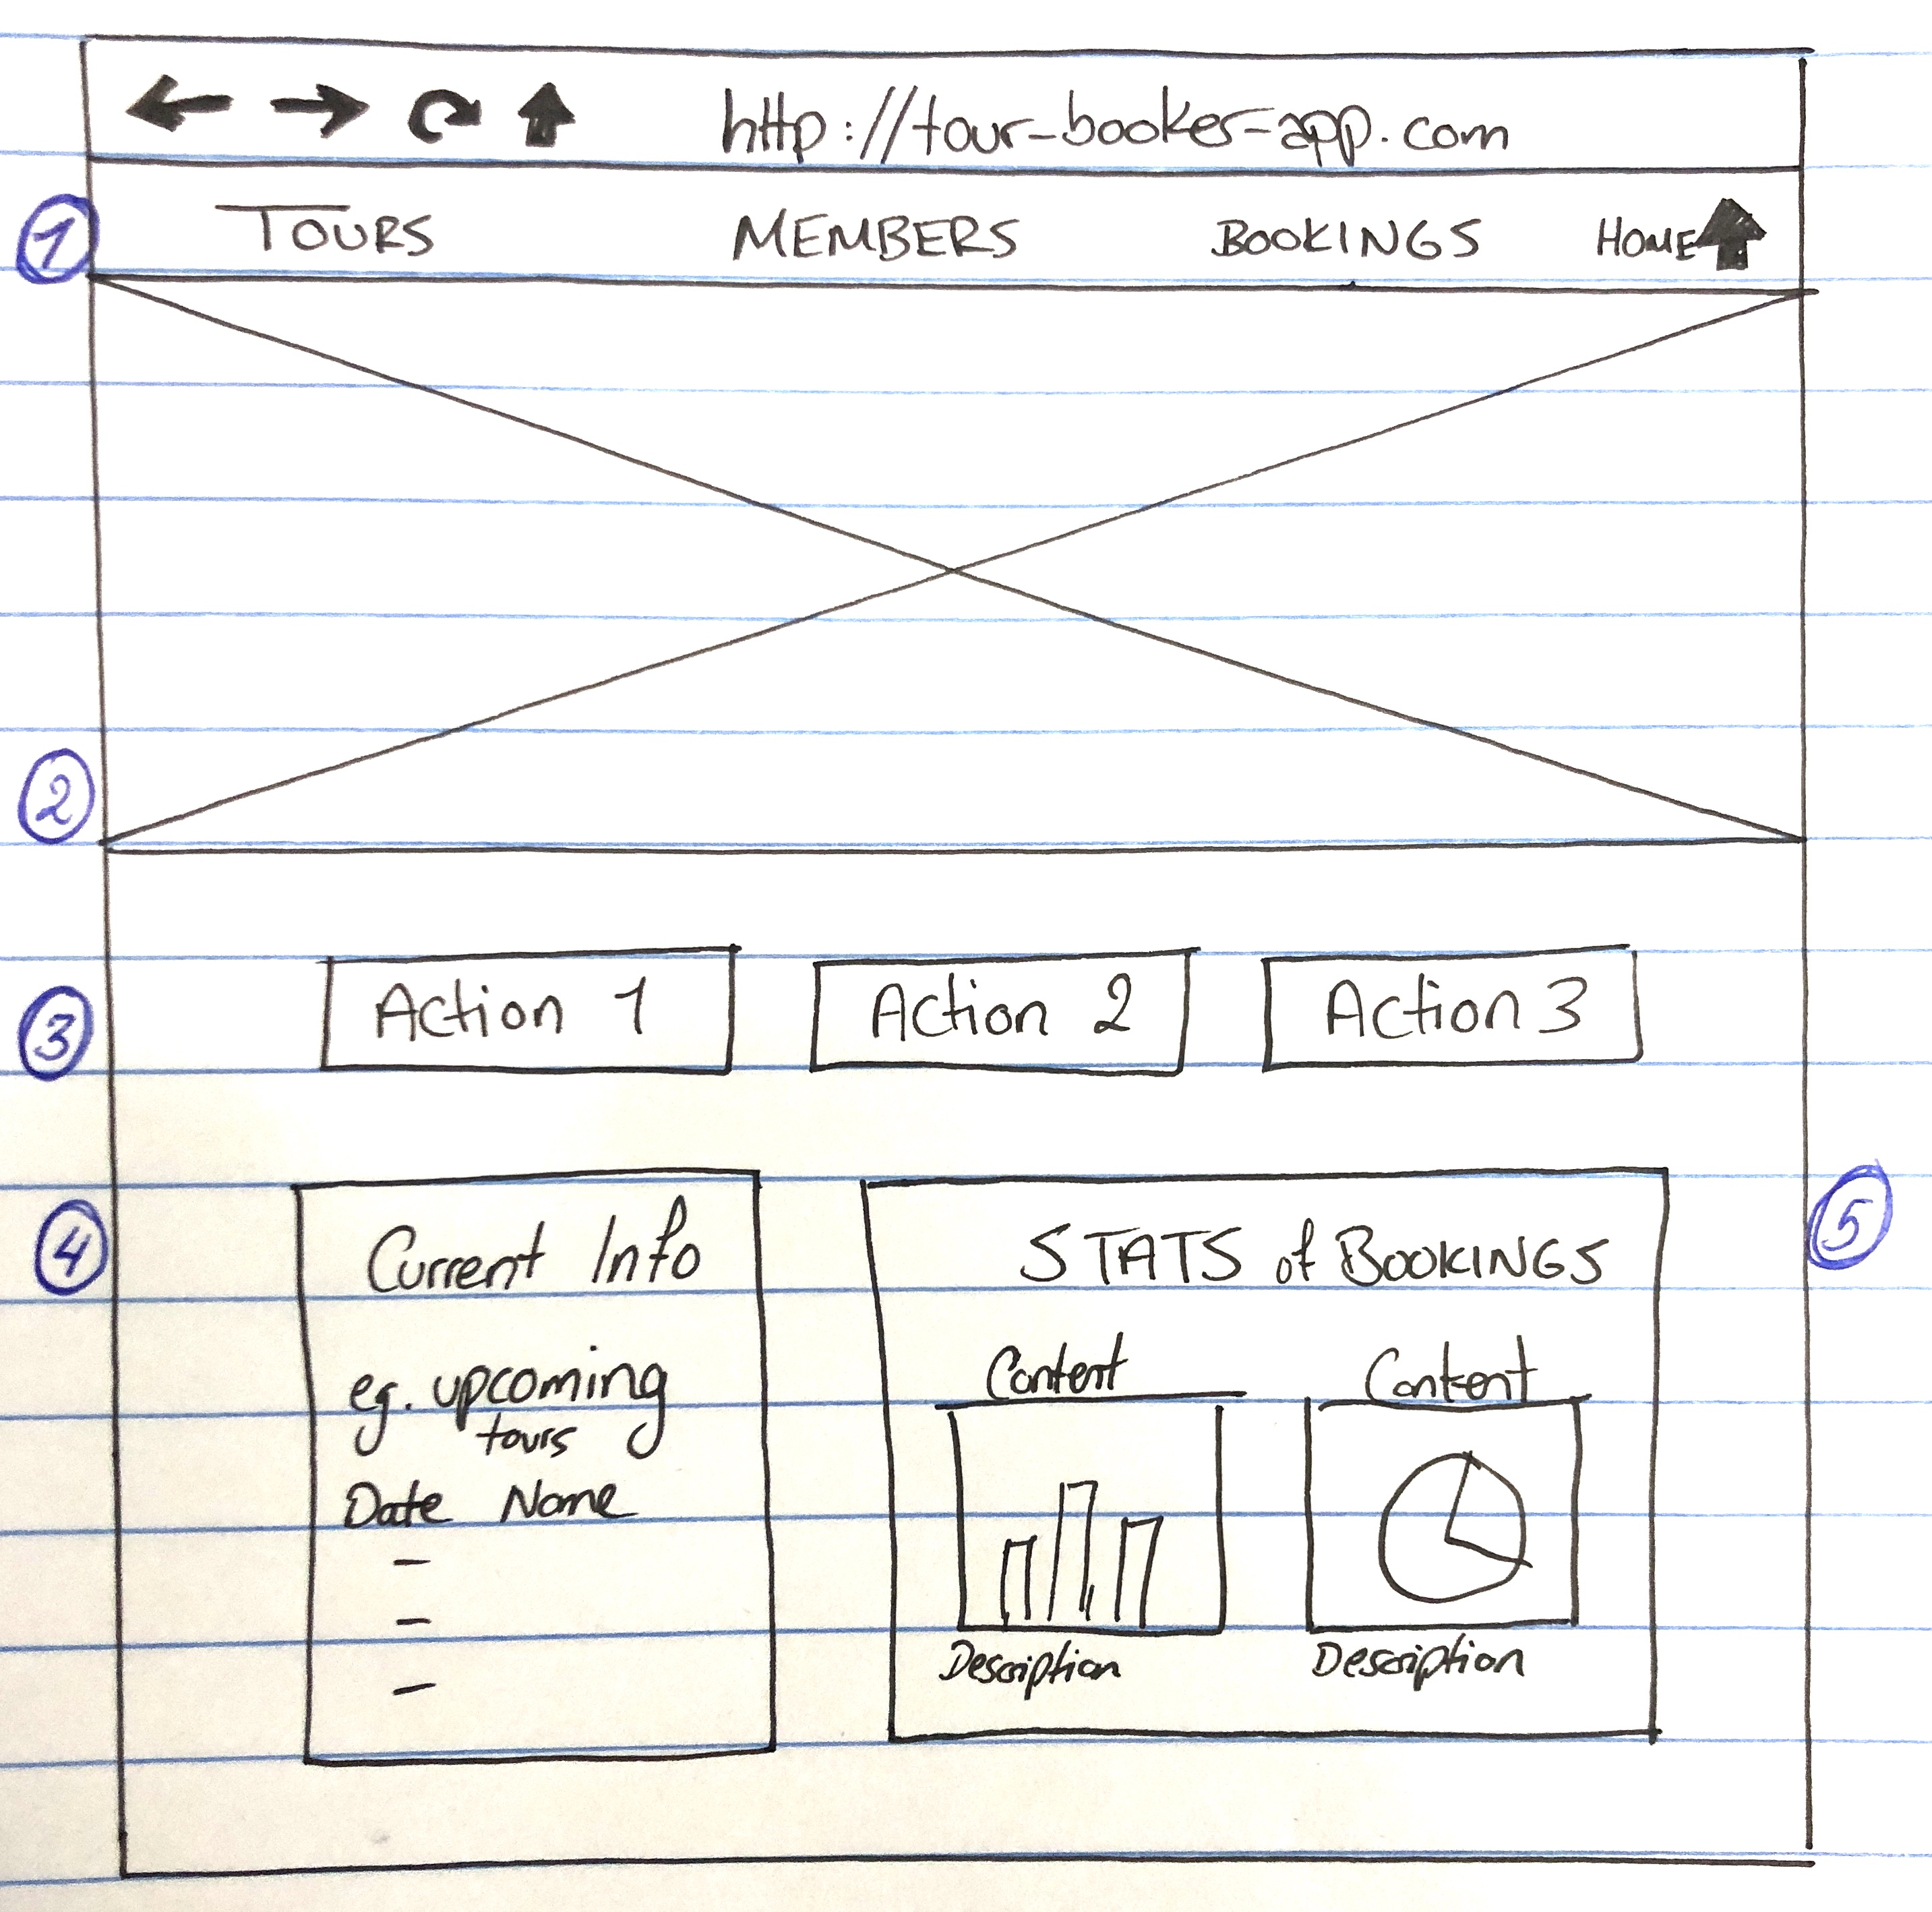 http://tour-booker-app.com
1 TOURS MEMBERS BOOKINGS HOME
2
3 Action 1 Action 2 Action 3
4 Current Info
eg. upcoming
tours
Date Name
5 STATS of BOOKINGS
Content Content
Description Description